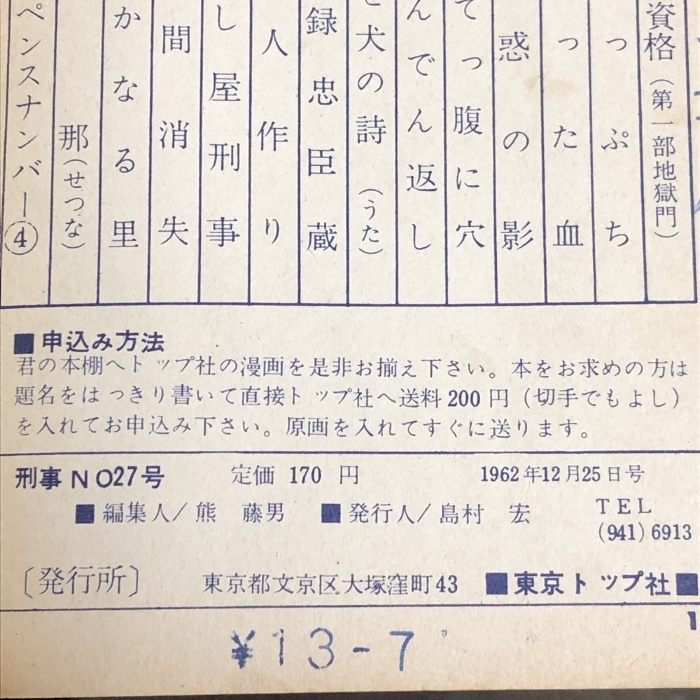 資格（第一部地獄門）
っぷち
った血
惑の影
てっ腹に穴
んでん返し
と犬の詩（うた）
録忠臣蔵
人作り
し屋刑事
間消失
かなる里
那（せつな）
ペンスナンバー④
■申込み方法
君の本棚へトップ社の漫画を是非お揃え下さい。本をお求めの方は
題名をはっきり書いて直接トップ社へ送料200円（切手でもよし）
を入れてお申込み下さい。原画を入れてすぐに送ります。
刑事NO27号 定価 170 円 1962年12月25日号
■編集人/熊 藤男 ■発行人/島村 宏 TEL
(941)6913
〔発行所〕 東京都文京区大塚窪町43 ■東京トップ社■
1
¥13-7